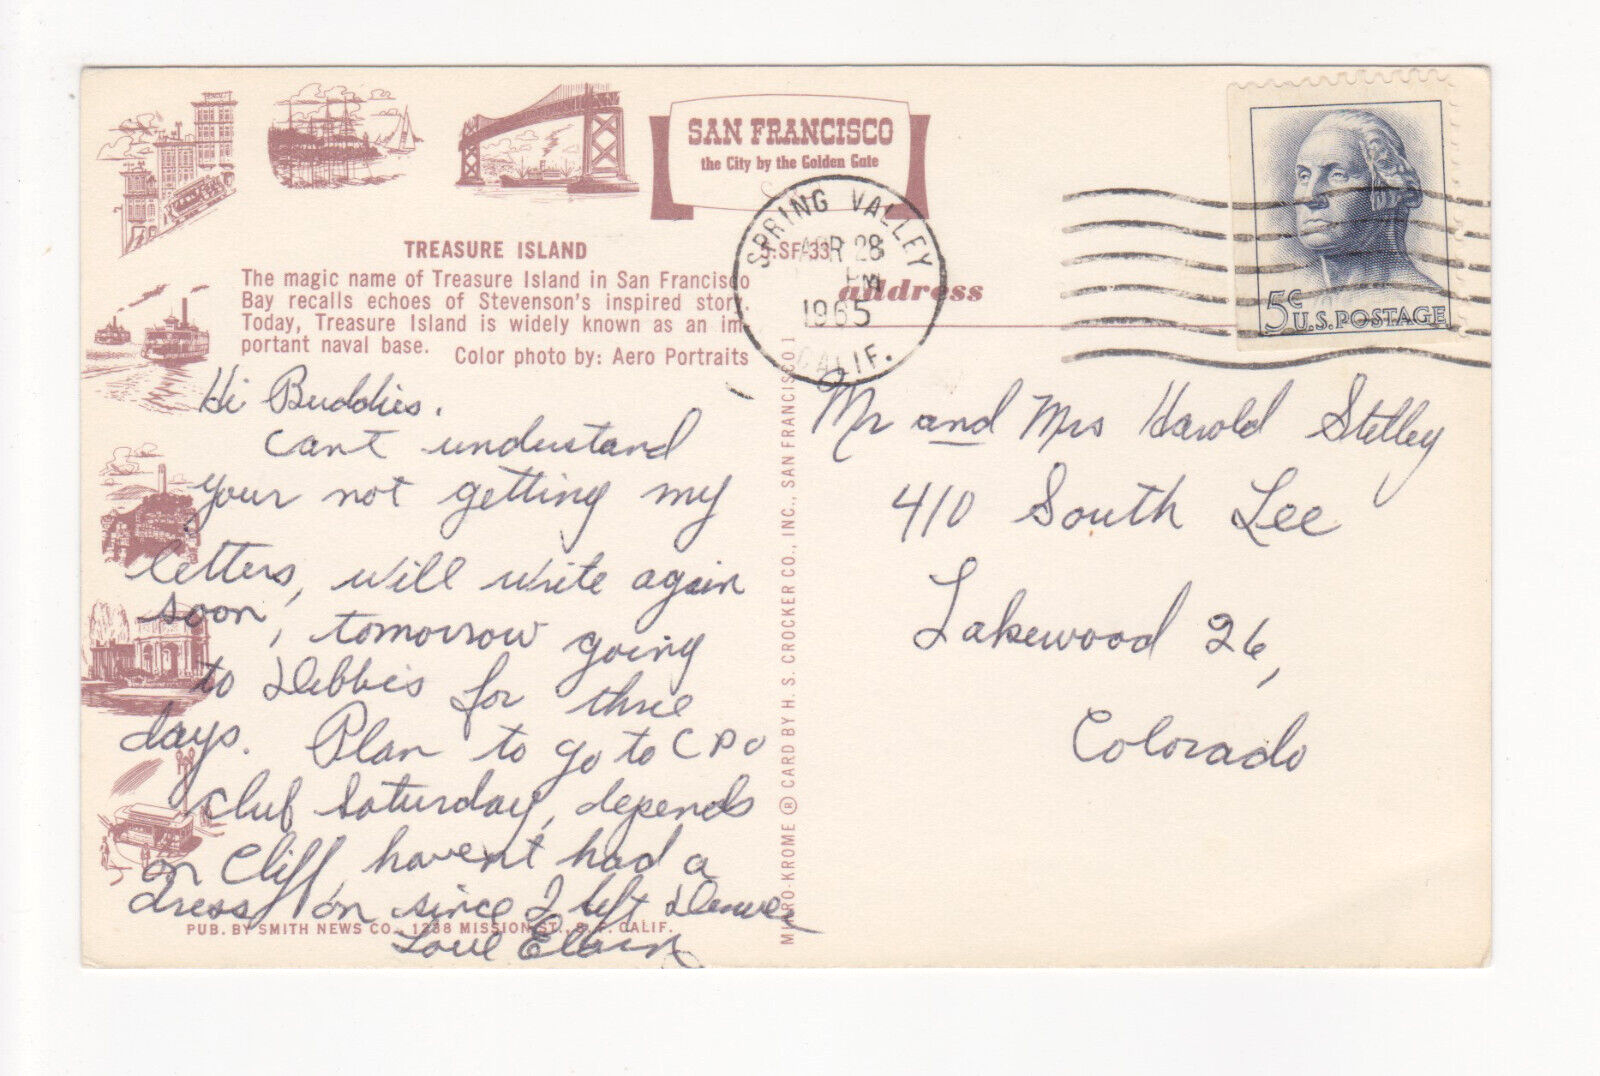 SAN FRANCISCO
the City by the Golden Gate
TREASURE ISLAND
The magic name of Treasure Island in San Francisco
Bay recalls echoes of Stevenson's inspired story.
Today, Treasure Island is widely known as an im-
portant naval base.
Color photo by: Aero Portraits
S-SF-33
address
SPRING VALLEY
APR 28
PM
1965
CALIF.
5¢
U.S. POSTAGE
Hi Buddies.
Cant understand
your not getting my
letters, will write again
soon, tomorrow going
to Debbies for three
days. Plan to go to CPO
Club Saturday, depends
on Cliff, havent had a
dress on since I left Denver
Love
PUB. BY SMITH NEWS CO., 1238 MISSION ST., S. F. CALIF.
MIKRO-KROME ® CARD BY H. S. CROCKER CO., INC., SAN FRANCISCO 1
Mr and Mrs Harold Stelley
410 South Lee
Lakewood 26,
Colorado